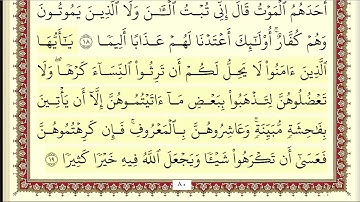 أَحَدَهُمُ ٱلْمَوْتُ قَالَ إِنِّي تُبْتُ ٱلْـَٰٔنَ وَلَا ٱلَّذِينَ يَمُوتُونَ
وَهُمْ كُفَّارٌ ۚ أُو۟لَٰٓئِكَ أَعْتَدْنَا لَهُمْ عَذَابًا أَلِيمًا ١٨ يَٰٓأَيُّهَا
ٱلَّذِينَ ءَامَنُوا۟ لَا يَحِلُّ لَكُمْ أَن تَرِثُوا۟ ٱلنِّسَآءَ كَرْهًا ۖ وَلَا
تَعْضُلُوهُنَّ لِتَذْهَبُوا۟ بِبَعْضِ مَآ ءَاتَيْتُمُوهُنَّ إِلَّآ أَن يَأْتِينَ
بِفَٰحِشَةٍ مُّبَيِّنَةٍ ۚ وَعَاشِرُوهُنَّ بِٱلْمَعْرُوفِ ۚ فَإِن كَرِهْتُمُوهُنَّ
فَعَسَىٰٓ أَن تَكْرَهُوا۟ شَيْـًٔا وَيَجْعَلَ ٱللَّهُ فِيهِ خَيْرًا كَثِيرًا ١٩
٨٠